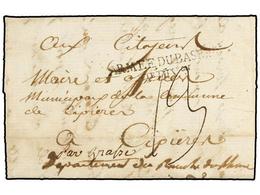 Aux Citoyens
ARMÉE DU BAS
Maire et officiers
Municipaux de la Commune
de Cipières
A Cipières
par Grasse
Departement des Bouches du Rhone